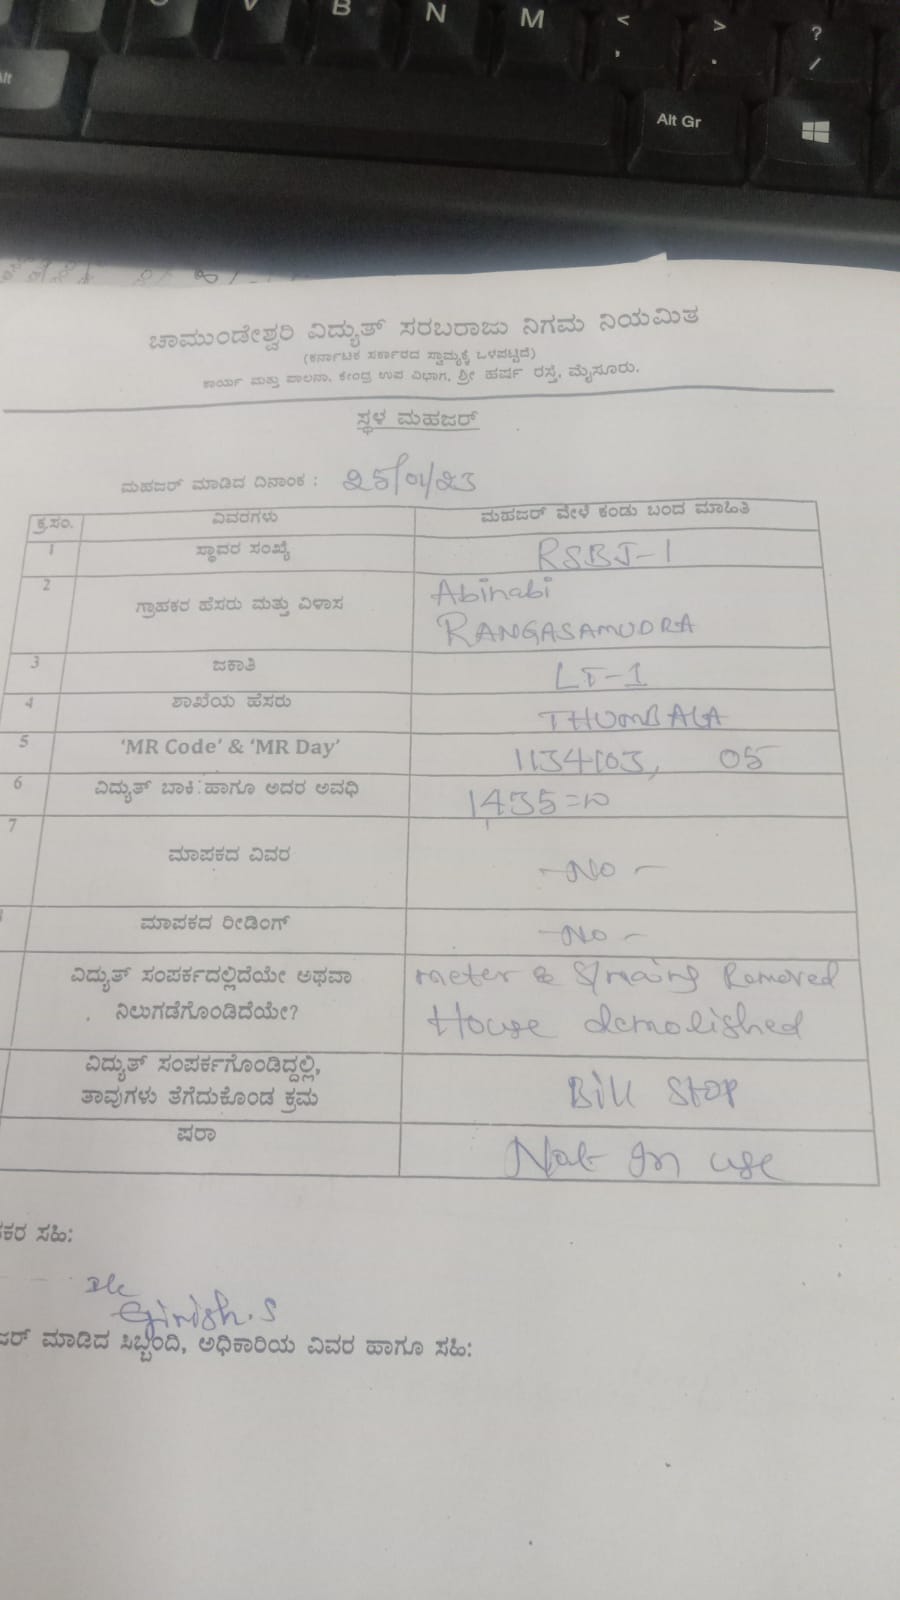 V B N M < , > . ? /
Alt Alt Gr
ಚಾಮುಂಡೇಶ್ವರಿ ವಿದ್ಯುತ್ ಸರಬರಾಜು ನಿಗಮ ನಿಯಮಿತ
(ಕರ್ನಾಟಕ ಸರ್ಕಾರದ ಸ್ವಾಮ್ಯಕ್ಕೆ ಒಳಪಟ್ಟಿದೆ)
ಕಾರ್ಯ ಮತ್ತು ಪಾಲನಾ, ಕೇಂದ್ರ ಉಪ ವಿಭಾಗ, ಶ್ರೀ ಹರ್ಷ ರಸ್ತೆ, ಮೈಸೂರು.
ಸ್ಥಳ ಮಹಜರ್
ಮಹಜರ್ ಮಾಡಿದ ದಿನಾಂಕ : 25/01/23
ಕ್ರ.ಸಂ. ವಿವರಗಳು ಮಹಜರ್ ವೇಳೆ ಕಂಡು ಬಂದ ಮಾಹಿತಿ
1 ಸ್ಥಾವರ ಸಂಖ್ಯೆ RSBJ-1
2 ಗ್ರಾಹಕರ ಹೆಸರು ಮತ್ತು ವಿಳಾಸ Abinabi
RANGASAMUDRA
3 ಜಕಾತಿ LT-1
4 ಶಾಖೆಯ ಹೆಸರು THUMBALA
5 'MR Code' & 'MR Day' 1134103, 05
6 ವಿದ್ಯುತ್ ಬಾಕಿ ಹಾಗೂ ಅದರ ಅವಧಿ 1435=00
7 ಮಾಪಕದ ವಿವರ -No-
ಮಾಪಕದ ರೀಡಿಂಗ್ -No-
ವಿದ್ಯುತ್ ಸಂಪರ್ಕದಲ್ಲಿದೆಯೇ ಅಥವಾ meter & S/maing Removed
ನಿಲುಗಡೆಗೊಂಡಿದೆಯೇ? House demolished
ವಿದ್ಯುತ್ ಸಂಪರ್ಕಗೊಂಡಿದ್ದಲ್ಲಿ,
ತಾವುಗಳು ತೆಗೆದುಕೊಂಡ ಕ್ರಮ Bill Stop
ಷರಾ Not in use
ಕರ ಸಹಿ:
Girish.S
ಜರ್ ಮಾಡಿದ ಸಿಬ್ಬಂದಿ, ಅಧಿಕಾರಿಯ ವಿವರ ಹಾಗೂ ಸಹಿ: